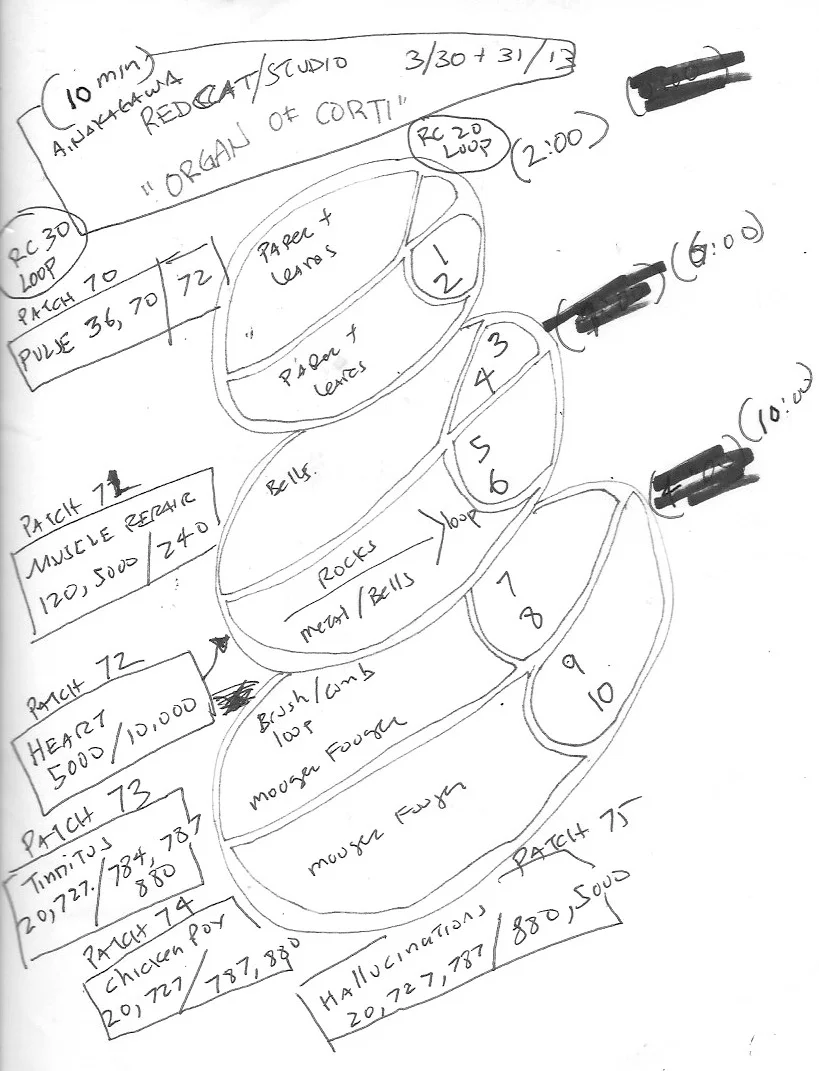 (10 min)
A. NAKAGAWA
REDCAT/STUDIO
3/30 + 31/13
"ORGAN OF CORTI"
RC 20
LOOP
(2:00)
RC 30
LOOP
PATCH 70
PULSE 36, 70/72
PAPER +
"
PAPER +
1
2
3
4
(6:00)
Bells.
5
6
(10:00)
PATCH 71
MUSCLE REPAIR
120, 5000/240
ROCKS
metal/Bells
loop
7
8
9
10
PATCH 72
HEART
5000/10,000
Brush/comb
loop
mooger Fooger
mooger Fooger
PATCH 73
TinniTus
20,727/784, 787
880
PATCH 74
chicken Pox
20,727/787,880
PATCH 75
HAllucinations
20,727,787/880,5000